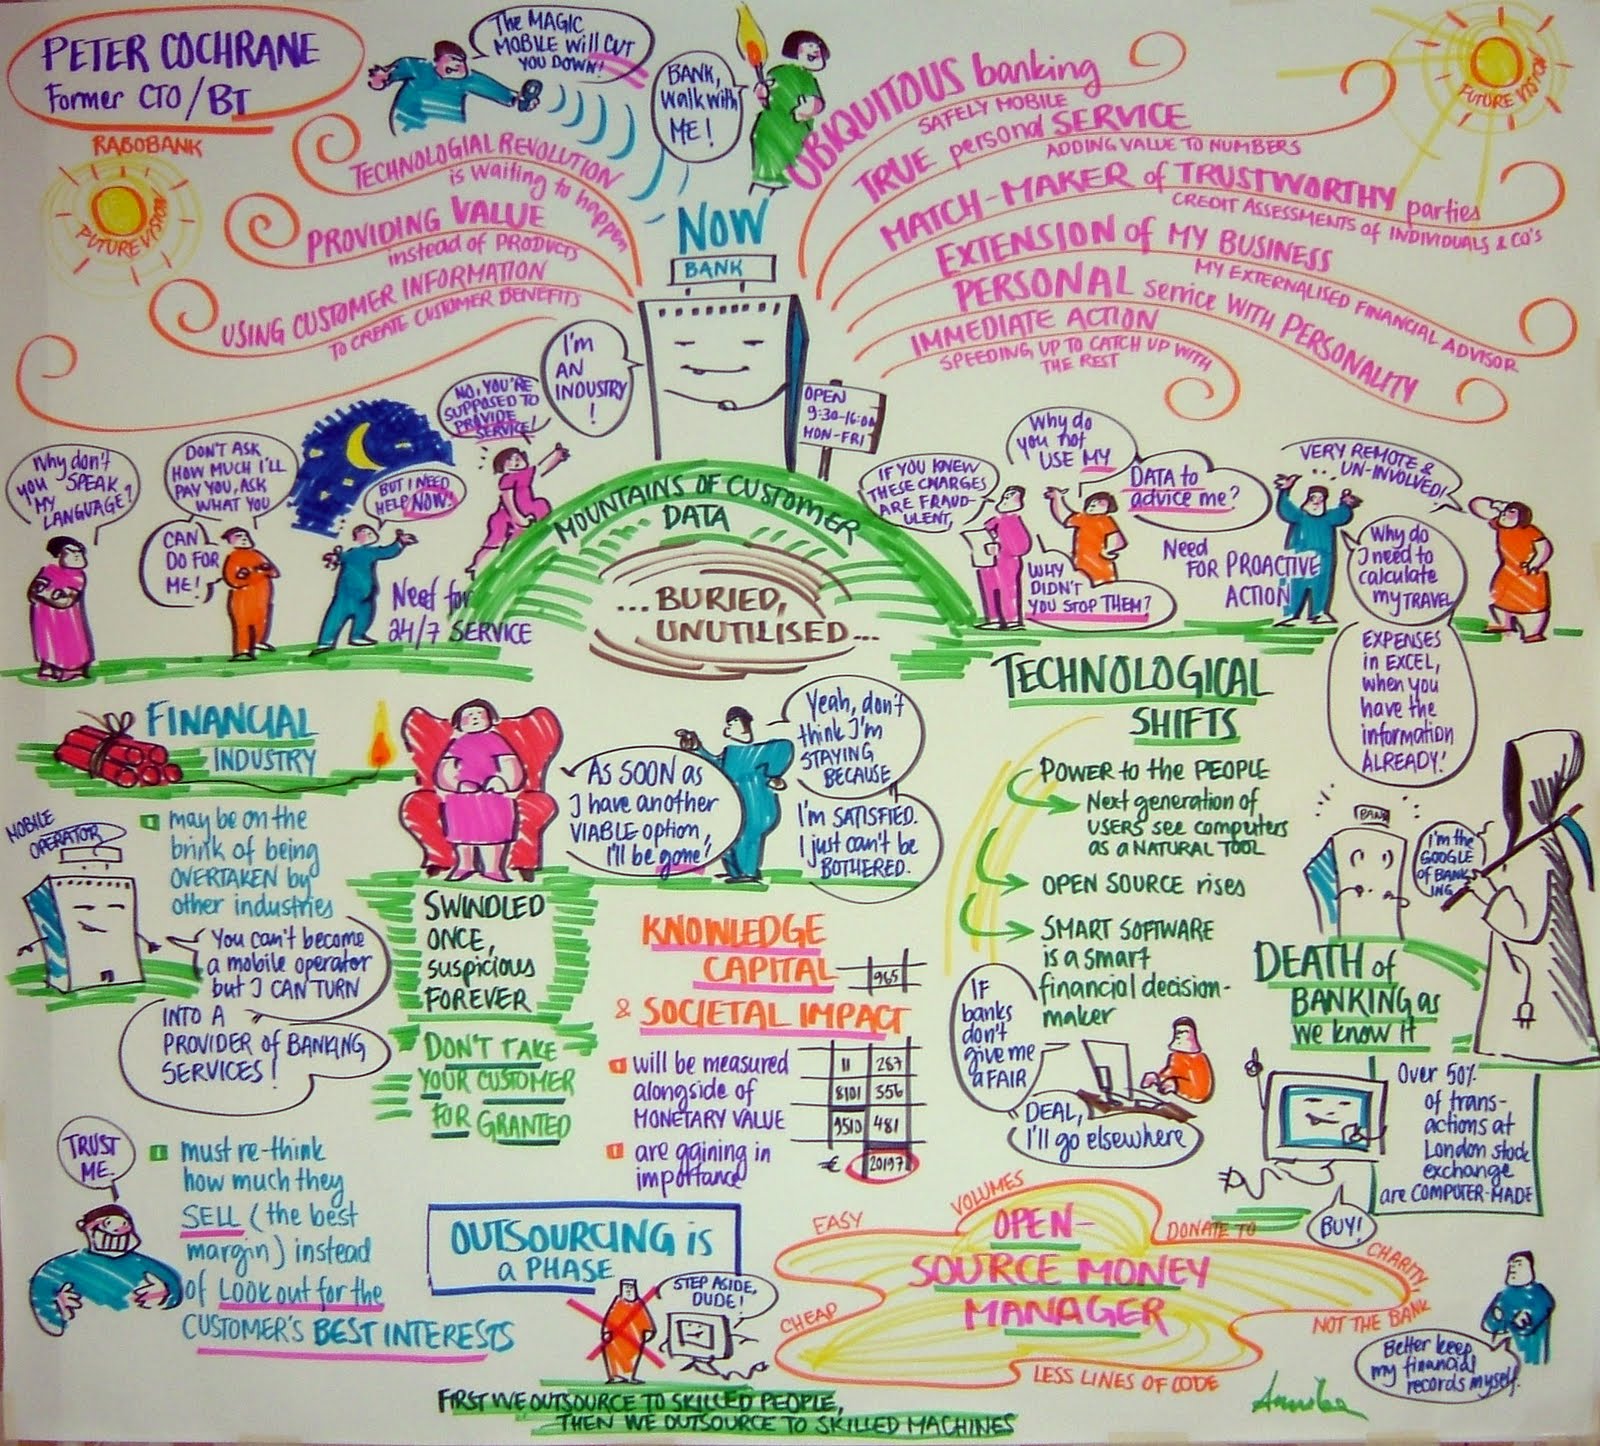 PETER COCHRANE
Former CTO/BT
RABOBANK
FUTURE VISION
The MAGIC
MOBILE will CUT
YOU DOWN!
BANK,
walk with
ME!
TECHNOLOGIAL REVOLUTION
is waiting to happen
PROVIDING VALUE
instead of PRODUCTS
USING CUSTOMER INFORMATION
TO CREATE CUSTOMER BENEFITS
UBIQUITOUS banking
SAFELY MOBILE
TRUE personal SERVICE
ADDING VALUE TO NUMBERS
MATCH-MAKER of TRUSTWORTHY parties
CREDIT ASSESSMENTS of INDIVIDUALS & CO'S
EXTENSION of MY BUSINESS
MY EXTERNALISED FINANCIAL ADVISOR
PERSONAL service WITH PERSONALITY
IMMEDIATE ACTION
SPEEDING UP TO CATCH UP WITH
THE REST
FUTURE VISION
NOW
BANK
I'm
AN
INDUSTRY
!
OPEN
9:30-16:00
MON-FRI
NO, YOU'RE
SUPPOSED TO
PROVIDE
SERVICE!
Why don't
you SPEAK
MY
LANGUAGE?
DON'T ASK
HOW MUCH I'LL
PAY YOU, ASK
WHAT YOU
CAN
DO FOR
ME!
BUT I NEED
HELP NOW!
Need for
24/7 SERVICE
MOUNTAINS OF CUSTOMER
DATA
...BURIED,
UNUTILISED...
IF YOU KNEW
THESE CHARGES
ARE FRAUD-
ULENT,
WHY
DIDN'T
YOU STOP THEM?
Why do
you not
USE MY
DATA to
advice me?
Need
FOR PROACTIVE
ACTION
VERY REMOTE &
UN-INVOLVED!
Why do
I need to
calculate
my TRAVEL
EXPENSES
in EXCEL,
when you
have the
information
ALREADY!
FINANCIAL
INDUSTRY
may be on the
brink of being
OVERTAKEN by
other industries
MOBILE
OPERATOR
You can't become
a mobile operator
but I CAN TURN
INTO A
PROVIDER of BANKING
SERVICES!
TRUST
ME.
must re-think
how much they
SELL (the best
margin) instead
of Look out for the
CUSTOMER'S BEST INTERESTS
AS SOON as
I have another
VIABLE option,
I'll be gone!
Yeah, don't
think I'm
STAYING
BECAUSE
I'm SATISFIED.
I just can't be
BOTHERED.
SWINDLED
ONCE,
suspicious
FOREVER
DON'T TAKE
YOUR CUSTOMER
FOR GRANTED
KNOWLEDGE
CAPITAL
& SOCIETAL IMPACT
965
will be measured
alongside of
MONETARY VALUE
are gaining in
importance
11 287
8101 356
9510 481
€ 20197
TECHNOLOGICAL
SHIFTS
POWER to the PEOPLE
Next generation of
USERS see computers
as a NATURAL TOOL
OPEN SOURCE rises
SMART SOFTWARE
is a smart
financial decision-
maker
IF
banks
don't
give me
a FAIR
DEAL,
I'll go elsewhere
BANK
I'm the
GOOGLE
of BANK
ING
DEATH of
BANKING as
we know it
Over 50%
of trans-
actions at
London stock
exchange
are COMPUTER-MADE
BUY!
OUTSOURCING is
a PHASE
STEP ASIDE,
DUDE!
FIRST WE OUTSOURCE TO SKILLED PEOPLE,
THEN WE OUTSOURCE TO SKILLED MACHINES
OPEN-
SOURCE MONEY
MANAGER
EASY
VOLUMES
DONATE TO
CHARITY,
NOT THE BANK
CHEAP
LESS LINES OF CODE
Better keep
my financial
records myself.